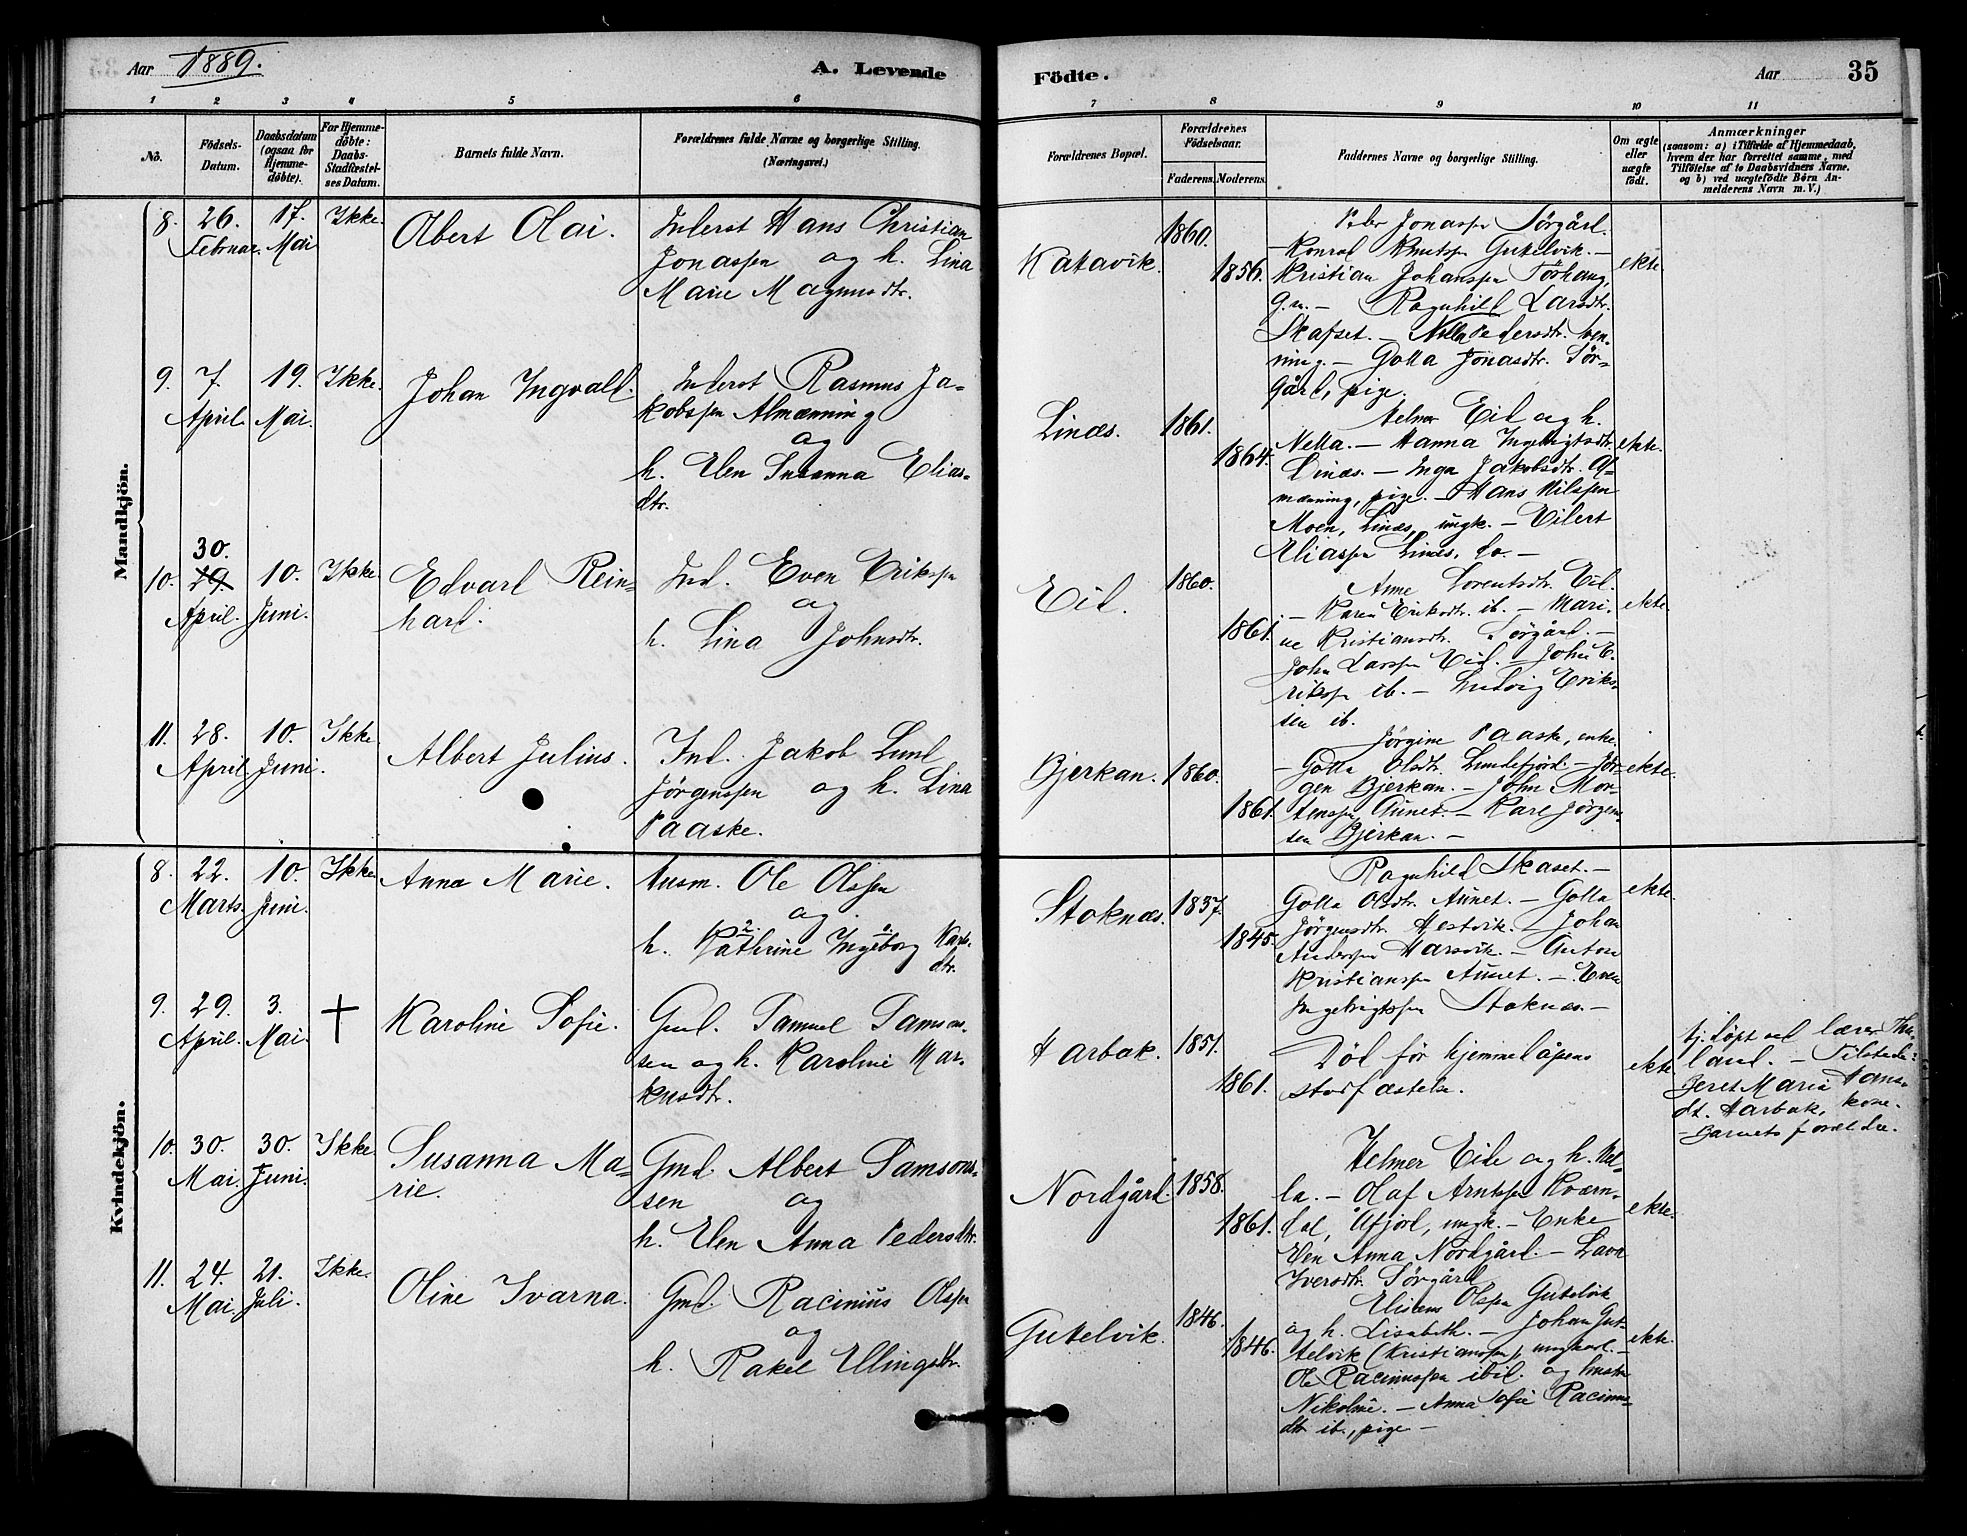 Aar 1889.
A. Levende
Födte.
Aar
35
1 2 3 4 5 6 7 8 9 10 11
No.
Födsels-
Datum.
Daabsdatum
(ogsaa for
Hjemme-
döbte).
For Hjemme-
döbte:
Daabs-
Stadfæstel-
ses Datum.
Barnets fulde Navn.
Forældrenes fulde Navne og borgerlige Stilling.
(Næringsvei.)
Forældrenes Bopæl.
Forældrenes
Födselsaar.
Faderens. Moderens.
Faddernes Navne og borgerlige Stilling.
Om ægte
eller
uægte
födt.
Anmærkninger
(saasom: a) i Tilfælde af Hjemmedaab,
hvem der har forrettet samme, med
Tilföielse af to Daabsvidners Navne.
og b) ved uægtefödte Börn An-
melderens Navn m. V.)
Mandkjön.
8. 26. Februar. 17. Mai Ikke.
Albert Olai.
Inderst Hans Christian
Jonassen og h. Lina
Marie Magnusdtr.
Katavik.
1860.
1856.
Peder Jonassen Sörgård.
– Konrad Knutsen Gutelvik. –
Kristian Johanssen Törhaug,
g.m. – Ragnhild Larsdtr.
Skafset. – Nella Pedersdtr.
– Golla Jonasdtr. Sör-
gård, pige.
ekte.
9. 7. April. 19. Mai. Ikke.
Johan Ingvald.
Inderst Rasmus Ja-
kobssen Almænning
og
h. Elen Susanna Elias-
dtr.
Linæs.
1861.
1864.
Helmer Eid og h.
Nella. – Hanna Ingebrigtsdtr.
Linæs. – Inga Jakobsdtr. Al-
mænning, pige. – Hans Nilssen
Moen, Linæs, ungk. – Eilert
Eliassen Linæs, do. –
ekte.
10. 30. 29. April. 10. Juni. Ikke.
Edvard Rein-
hard.
Ind. Even Erikssen
og
h. Lina Johnsdtr.
Eid.
1860.
1861.
Anne Lorentsdtr. Eid.
– Karen Eriksdtr. ib. – Mari-
ne Kristiansdtr. Sörgård. –
John Larssen Eid. – John E-
rikssen ib. – Ludvig Eriks-
sen ib.
ekte.
11. 28. April. 10. Juni. Ikke.
Albert Julius.
Ind. Jakob Lund
Jörgenssen og h. Lina
Paaske.
Bjerkan.
1860.
1861.
Jörgine Paaske, enke.
– Golla Olsdtr. Lundefjord – Jör-
gen Bjerkan. – John Mor-
tenssen Aunet. – Karl Jörgens-
sen Bjerkan. –
ekte.
Kvindekjön.
8. 22. Marts. 10. Juni. Ikke
Anna Marie.
Husm. Ole Olssen
og
h. Kathrine Ingeborg Karls-
dtr.
2. 1.
Stoknæs.
1837.
1845.
Ragnhild Skaset. –
Golla Olsdtr. Aunet. – Golla
Jörgensdtr. Hestvik. – Johan
Anderssen Harsvik. – Anton
Kristianssen Aunet. – Even
Ingebrigtssen Stoknæs. –
ekte.
9. 29. April. 3. Mai. †
Karoline Sofie.
Gmd. Samuel Samsons-
sen og h. Karoline Mar-
kusdtr.
Harbak.
1851.
1861.
Död för hjemmedåpens
stadfæstelse.
ekte
hj.döpt ved lærer Thu-
land. – Tilstede:
Beret Maria Hans-
dt. Harbak, kone.
– Barnets forældre.
10. 30. Mai. 30. Juni. Ikke
Susanna Ma-
rie.
Gmd. Albert Samsons-
sen og
h. Elen Anna Pedersdtr.
Nordgård.
1858.
1861.
Helmer Eide og h. Nel-
la. – Olaf Arntssen Kværn-
dal, Åfjord, ungk. – Enke
Elen Anna Nordgård. – Lava
Iversdtr. Sörgård
ekte.
11. 24. Mai. 21. Juli. Ikke.
Oline Ivarna.
Gmd. Racinius Olssen
og
h. Rakel Ellingsdtr.
Gutelvik.
1846.
1846.
Eliæus Olssen Gutelvik
og h. Lisabeth. – Johan Gut-
telvik (Kristianssen), ungkarl. –
Ole Raciniussen ibid. og hustru
Nikoline. – Anna Sofie Racinius-
dtr. ib., pige –
ekte.